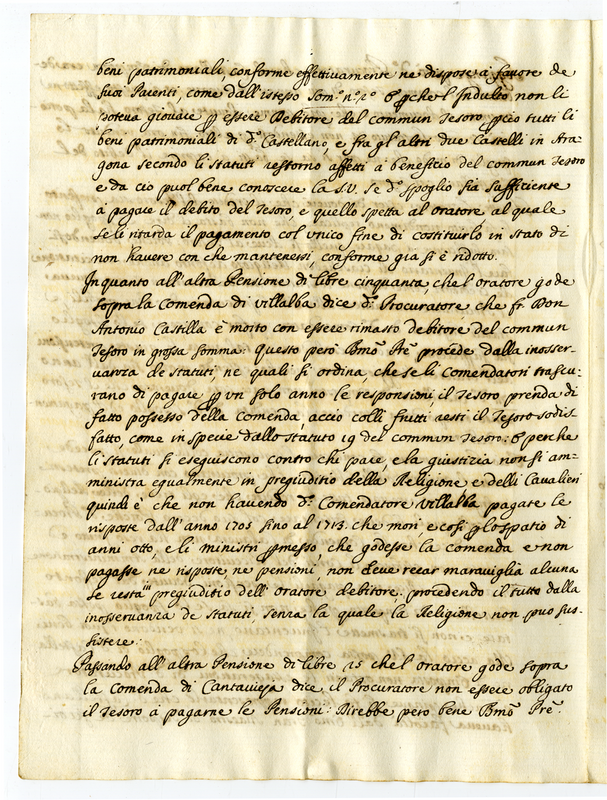 beni patrimoniali, conforme effettivamente ne dispose à favore de
suoi Parenti, come dall'istesso Som.º n.º 2º & p̱che l'Indulto non li
poteva giovare p̱ essere Debitore del commun Tesoro p̱ciò tutti li
beni patrimoniali di d.º Castellano, e fra gl'altri due Castelli in Ara-
gona secondo li statuti restorno affetti à beneficio del commun Tesoro
e da ciò puol bene conoscere la S.V. se d.º spoglio sia sufficiente
à pagare il debito del Tesoro, e quello spetta al oratore al quale
se li ritarda il pagamento col unico fine di costituirlo in stato di
non havere con che mantenersi, conforme gia si è ridotto.
In quanto all'altra Pensione di libre cinquanta, che l'oratore gode
sopra la Comenda di Villalba dice d.º Procuratore che fr Don
Antonio Castilla è morto con essere rimasto debitore del commun
Tesoro in grossa somma: Questo però Bmõ Prẽ procede dalla inosser-
vanza de statuti, ne quali si ordina, che se li Comendatori trascu-
rano di pagare p̱ un solo anno le responsioni, il Tesoro prenda di
fatto possesso della Comenda, acciò colli frutti resti il Tesoro sodis
fatto, come in specie dallo statuto 19 del commun Tesoro: & perche
li statuti si eseguiscono contro chi pare, e la giustizia non si am-
ministra egualmente in pregiuditio della Religione e delli Cavalieri
quindi è che non havendo d.º Comendatore Villalba pagate le
risposte dall'anno 1705 sino al 1713. che morì e così p̱ lo spatio di
anni otto, e li ministri p̱messo, che godesse la comenda e non
pagasse ne risposte, ne pensioni, non deve recar maraviglia alcuna
se resta in pregiuditio dell'oratore debitore: procedendo il tutto dalla
inosservanza de statuti senza la quale la Religione non può sus
sistere:
Passando all'altra Pensione di libre 25 che l'oratore gode sopra
la Comenda di Cantavieja dice il Procuratore non essere obligato
il Tesoro à pagarne le Pensioni: Direbbe però bene Bmõ Prẽ.